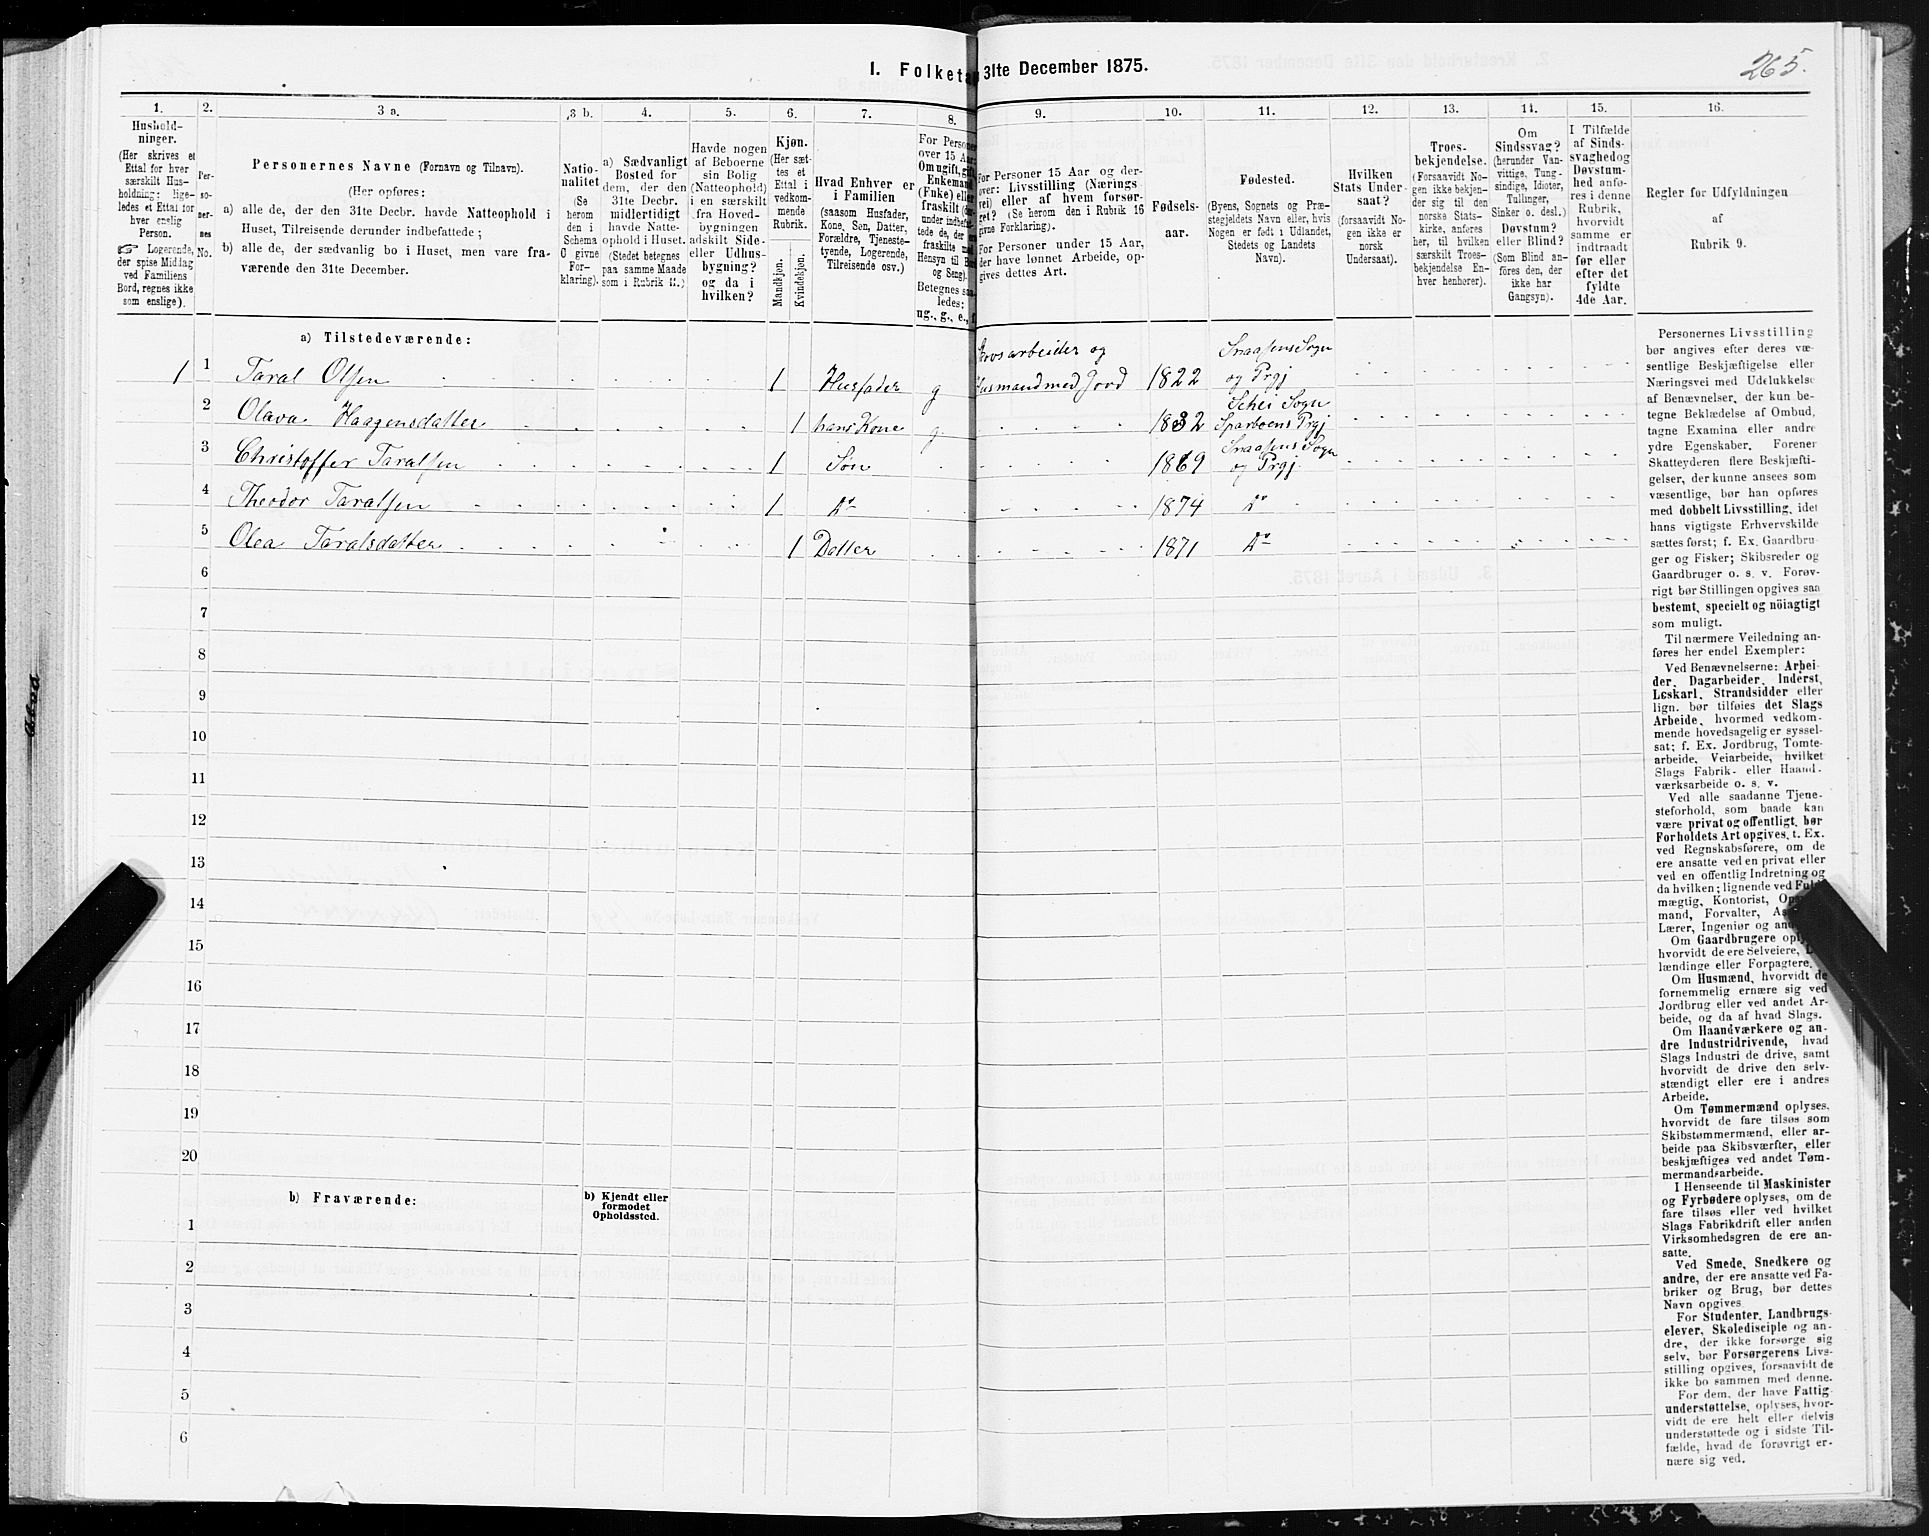 I. Folketa 31te December 1875.
265.
1. 2. 3 a. 3 b. 4. 5. 6. 7. 8. 9. 10. 11. 12. 13. 14. 15. 16.
Hushold-
ninger.
(Her skrives et
Ettal for hver
særskilt Hus-
holdning; lige-
ledes et Ettal for
hver enslig
Person.
☞ Logerende,
der spise Middag
ved Familiens
Bord, regnes ikke
som enslige).
Per-
so-
ner-
nes
No.
Personernes Navne (Fornavn og Tilnavn).
(Her opføres:
a) alle de, der den 31te Decbr. havde Natteophold i
Huset, Tilreisende derunder indbefattede;
b) alle de, der sædvanlig bo i Huset, men vare fra-
værende den 31te December.
Natio-
nalitet
(Se
herom
den i
Schema
C givne
For-
klaring).
a) Sædvanligt
Bosted for
dem, der den
31te Decbr.
midlertidigt
havde Natte-
ophold i Huset.
(Stedet betegnes
paa samme Maade
som i Rubrik 11.)
Havde nogen
af Beboerne
sin Bolig
(Natteophold)
i en særskilt
fra Hoved-
bygningen
adskilt Side-
eller Udhus-
bygning?
og da i
hvilken?
Kjøn.
(Her sæt-
tes et
Ettal i
vedkom-
mende
Rubrik.
Mandkjøn.
Kvindekjøn.
Hvad Enhver er
i Familien
(saasom Husfader,
Kone, Søn, Datter,
Forældre, Tjeneste-
tyende, Logerende,
Tilreisende osv.)
For Personer
over 15 Aar:
Omugift, gift,
Enkemand
(Enke) eller
fraskilt
Hensyn til Bord
og Seng).
Betegnes saa-
ledes:
ug., g., e., f.
For Personer 15 Aar og der-
over: Livsstilling (Nærings-
vei) eller af hvem forsør-
get? (Se herom den i Rubrik 16
givne Forklaring).
For Personer under 15 Aar,
der have lønnet Arbeide, op-
gives dettes Art.
Fødsels-
aar.
Fødested.
(Byens, Sognets og Præ-
stegjeldets Navn eller, hvis
Nogen er født i Udlandet,
Stedets og Landets
Navn).
Hvilken
Stats Under-
saat?
(forsaavidt No-
gen ikke er
norsk
Undersaat).
Troes-
bekjendelse.
(Forsaavidt No-
gen ikke bekjen-
der sig til den
norske Stats-
kirke, anføres
her, til hvilken
særskilt Troes-
bekjendelse En-
hver henhører).
Om
Sindssvag?
(herunder Van-
vittige, Tung-
sindige, Idioter,
Tullinger,
Sinker o. desl.)
Døvstum?
eller Blind?
(Som Blind an-
føres den, der
ikke har
Gangsyn).
I Tilfælde
af Sinds-
svaghed og
Døvstum-
hed anfø-
res i denne
Rubrik,
hvorvidt
samme er
indtraadt
før eller
efter det
fyldte
4de Aar.
Regler for Udfyldningen
af
Rubrik 9.
a) Tilstedeværende:
1 1 Taral Olsen 1 Husfader g Grovarbeider og Husmand med Jord 1822 Snaasens Sogn og Prgj
2 Olava Haagensdatter 1 hans Kone g 1832 Schei Sogn Sparboens Prgj
3 Christoffer Taralsen 1 Søn 1869 Snaasens Sogn og Prgj
4 Theodor Taralsen 1 do 1874 do
5 Olea Taralsdatter 1 Datter 1871 do
6
7
8
9
10
11
12
13
14
15
16
17
18
19
20
b) Fraværende:
b) Kjendt eller
formodet
Opholdssted.
1
2
3
4
5
6
Personernes Livsstilling
bør angives efter deres væ-
sentlige Beskjæftigelse eller
Næringsvei med Udelukkelse
af Benævnelser, der kun be-
tegne Beklædelse af Ombud,
tagne Examina eller andre
ydre Egenskaber. Forener
Skatteyderen flere Beskjæfti-
gelser, der kunne ansees som
væsentlige, bør han opføres
med dobbelt Livsstilling, idet
hans vigtigste Erhvervskilde
sættes først; f. Ex. Gaardbru-
ger og Fisker; Skibsreder og
Gaardbruger o. s. v. Forøv-
rigt bør Stillingen opgives saa
bestemt, specielt og nöiagtigt
som muligt.
Til nærmere Veiledning an-
føres her endel Exempler:
Ved Benævnelserne: Arbei-
der, Dagarbeider, Inderst,
Løskarl, Strandsidder eller
lign. bør tilføies det Slags
Arbeide, hvormed vedkom-
mende hovedsagelig er syssel-
sat; f. Ex. Jordbrug, Tomte-
arbeide, Veiarbeide, hvilket
Slags Fabrik- eller Haand-
værksarbeide o. s. v.
Ved alle saadanne Tjene-
steforhold, som baade kan
være privat og offentligt, bør
Forholdets Art opgives, t. Ex.
ved Regnskabsførere, om de
ere ansatte ved en privat eller
ved en offentlig Indretning og
da hvilken; lignende ved Fuld-
mægtig, Kontorist, Ops
mand, Forvalter, As
Lærer, Ingeniør og and
Om Gaardbrugere oply
hvorvidt de ere Selveiere,
lændinge eller Forpagtere.
Om Husmænd, hvorvidt de
fornemmelig ernære sig ved
Jordbrug eller ved andet Ar-
beide, og da af hvad Slags.
Om Haandværkere og an-
dre Industridrivende, hvad
Slags Industri de drive, samt
hvorvidt de drive den selv-
stændigt eller ere i andres
Arbeide.
Om Tømmermænd oplyses,
hvorvidt de fare tilsøs som
Skibstømmermænd, eller ar-
beide paa Skibsværfter, eller
beskjæftiges ved andet Tøm-
mermandsarbeide.
I Henseende til Maskinister
og Fyrbødere oplyses, om de
fare tilsøs eller ved hvilket
Slags Fabrikdrift eller anden
Virksomhedsgren de ere an-
satte.
Ved Smede, Snedkere og
andre, der ere ansatte ved Fa-
briker og Brug, bør dettes
Navn opgives
For Studenter, Landbrugs-
elever, Skoledisciple og an-
dre, der ikke forsørge sig
selv, bør Forsørgerens Livs-
stilling opgives, forsaavidt de
ikke bo sammen med denne.
For dem, der have Fattig-
understøttelse, oplyses, hvor-
vidt de ere helt eller delvis
understøttede og i sidste Til-
fælde, hvad de forøvrigt er-
nære sig ved.